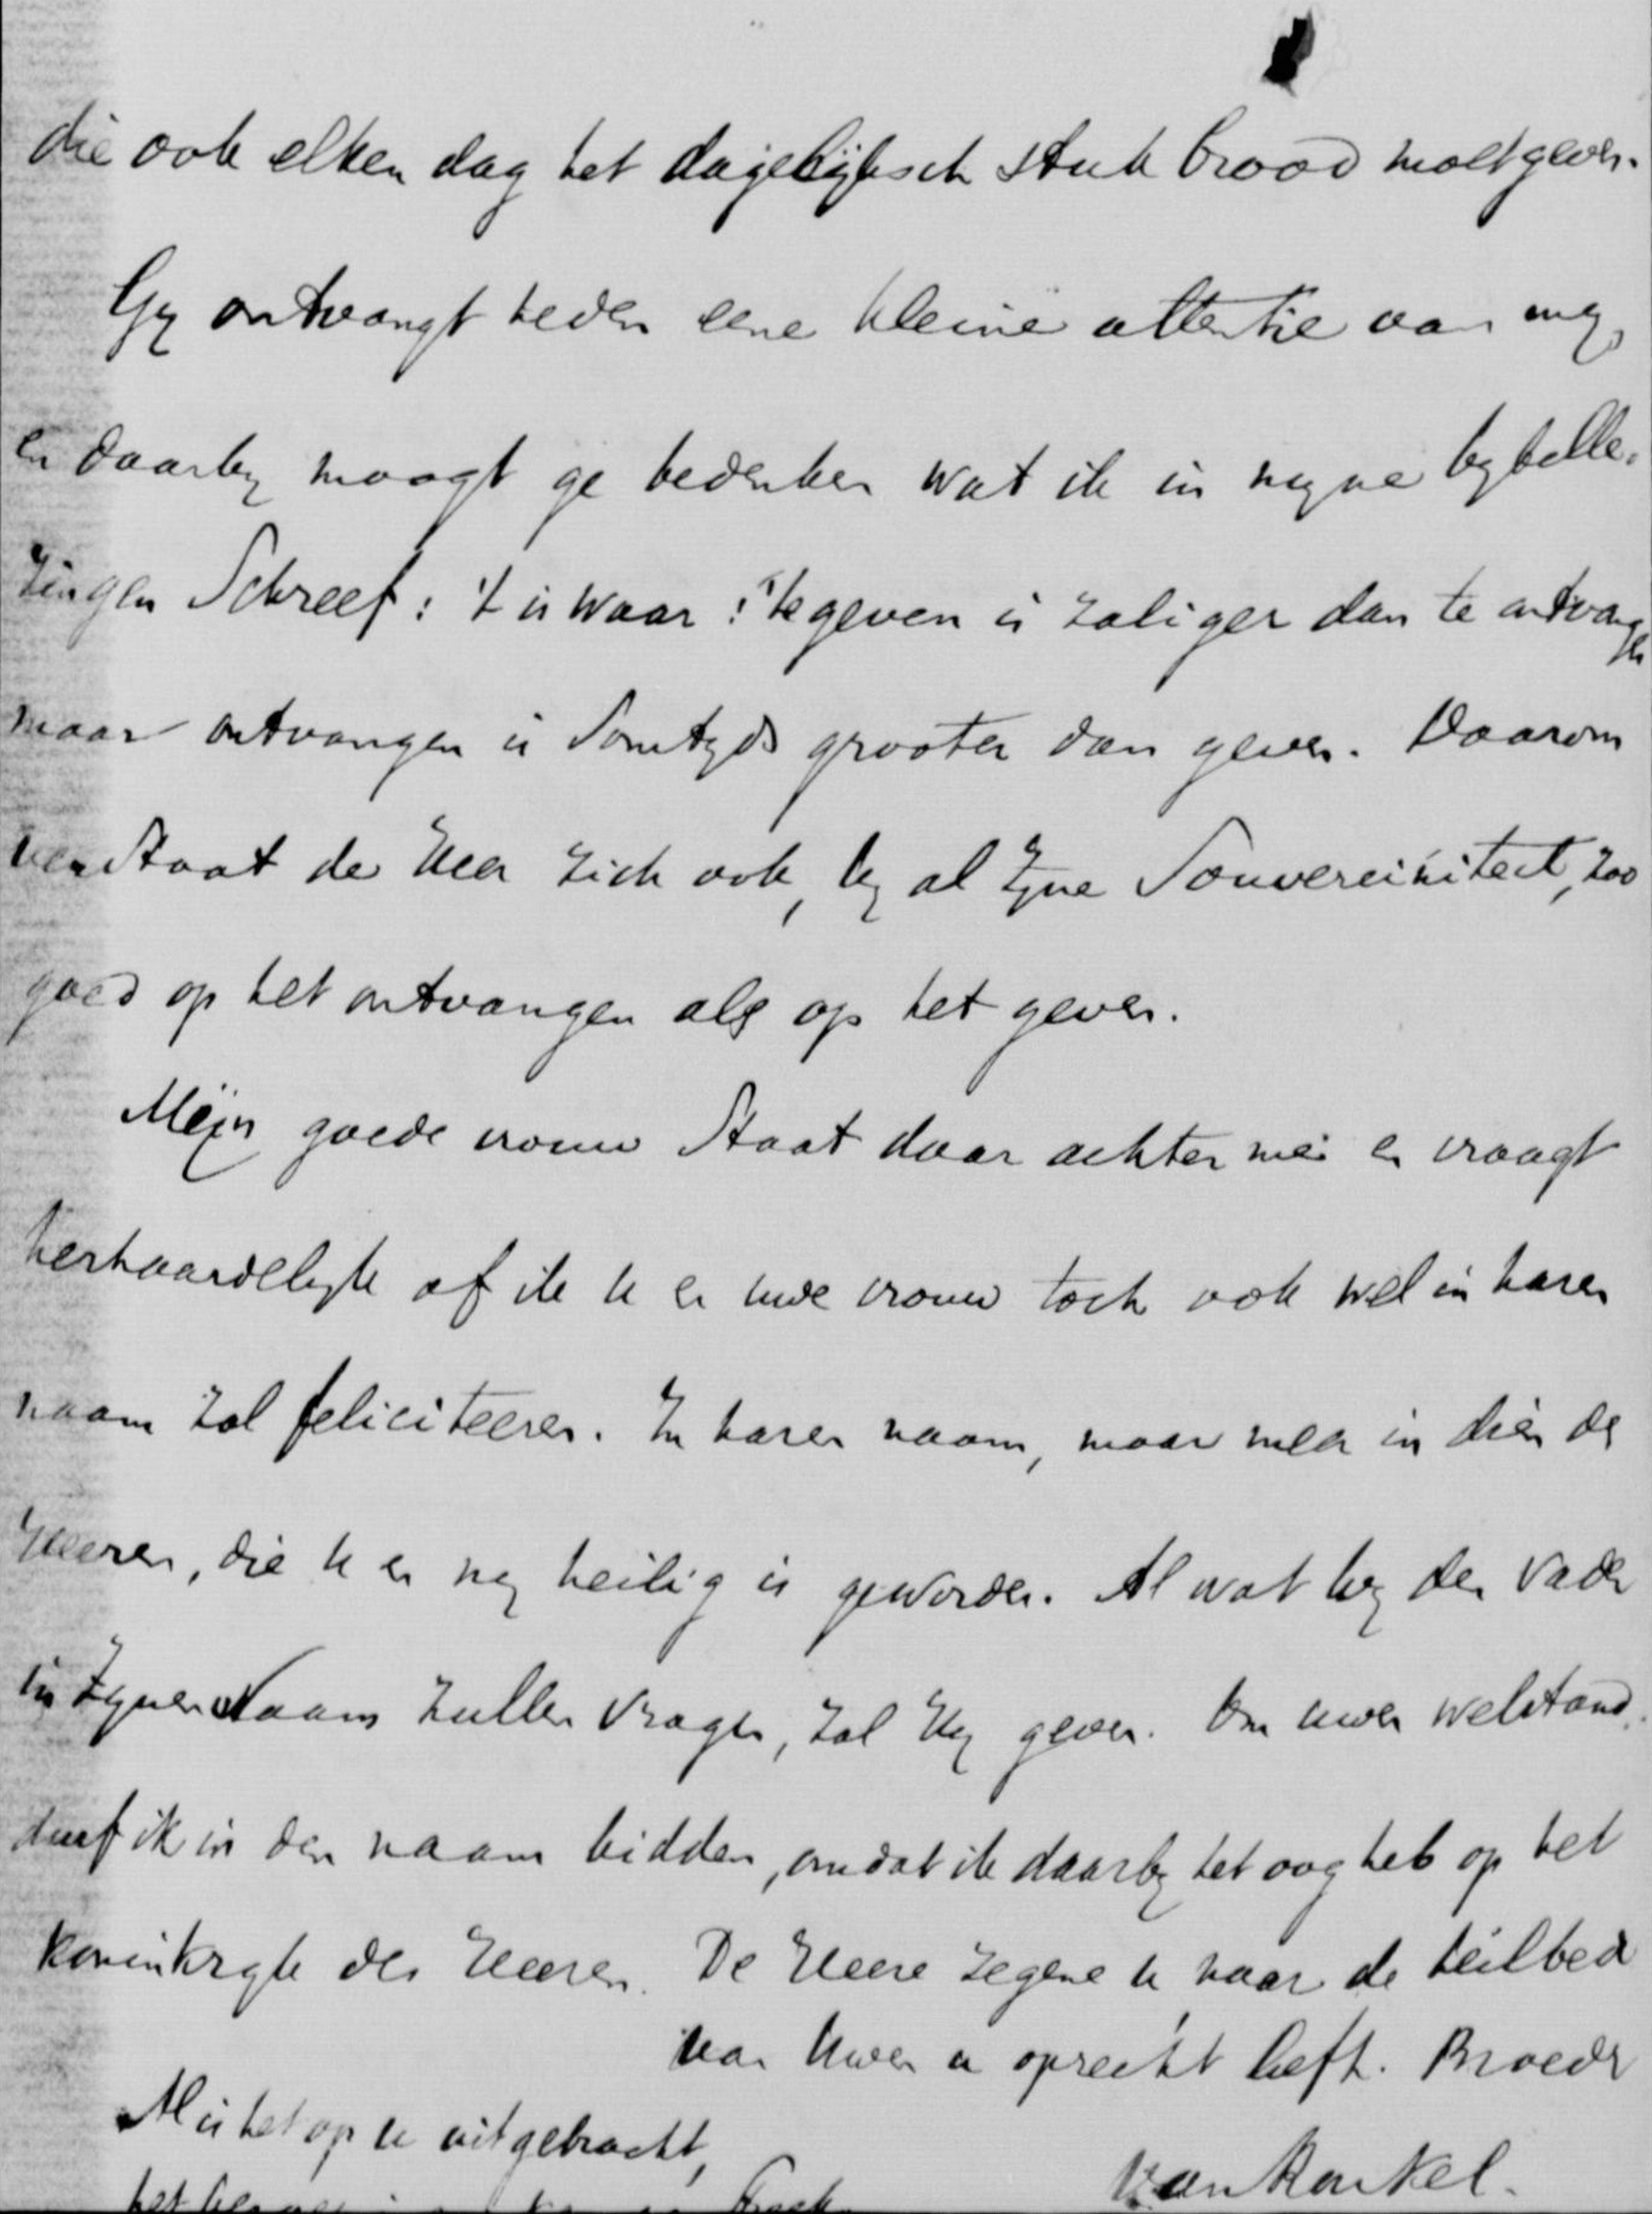 die ook elken dag het dagelijksch stuk brood moet geven.
Gy ontvangt heden eene kleine attentie van my,
en daarby moogt ge bedenken wat ik in myne bybelle-
zingen schreef: 't is waar: te geven is zaliger dan te ontvangen
maar ontvangen is somtyds grooter dan geven. Daarom
verstaat de Heer zich ook, by al Zyne Souvereiniteit, zoo
goed op het ontvangen als op het geven.
Mijn goede vrouw staat daar achter mij en vraagt
herhaaldelyk of ik u en uwe vrouw toch ook wel in haren
naam zal feliciteeren. In haren naam, maar meer in dien des
Heeren, die u en my heilig is geworden. Al wat wy den Vader
in Zynen Naam zullen vragen, zal Hy geven. Om uwen welstand
durf ik in den naam bidden, omdat ik daarby het oog heb op het
koninkryk des Heeren. De Heere zegene u naar de heilbede
van Uwen u oprecht liefh. Broeder
Al is het op u uitgebracht,
van Ronkel.